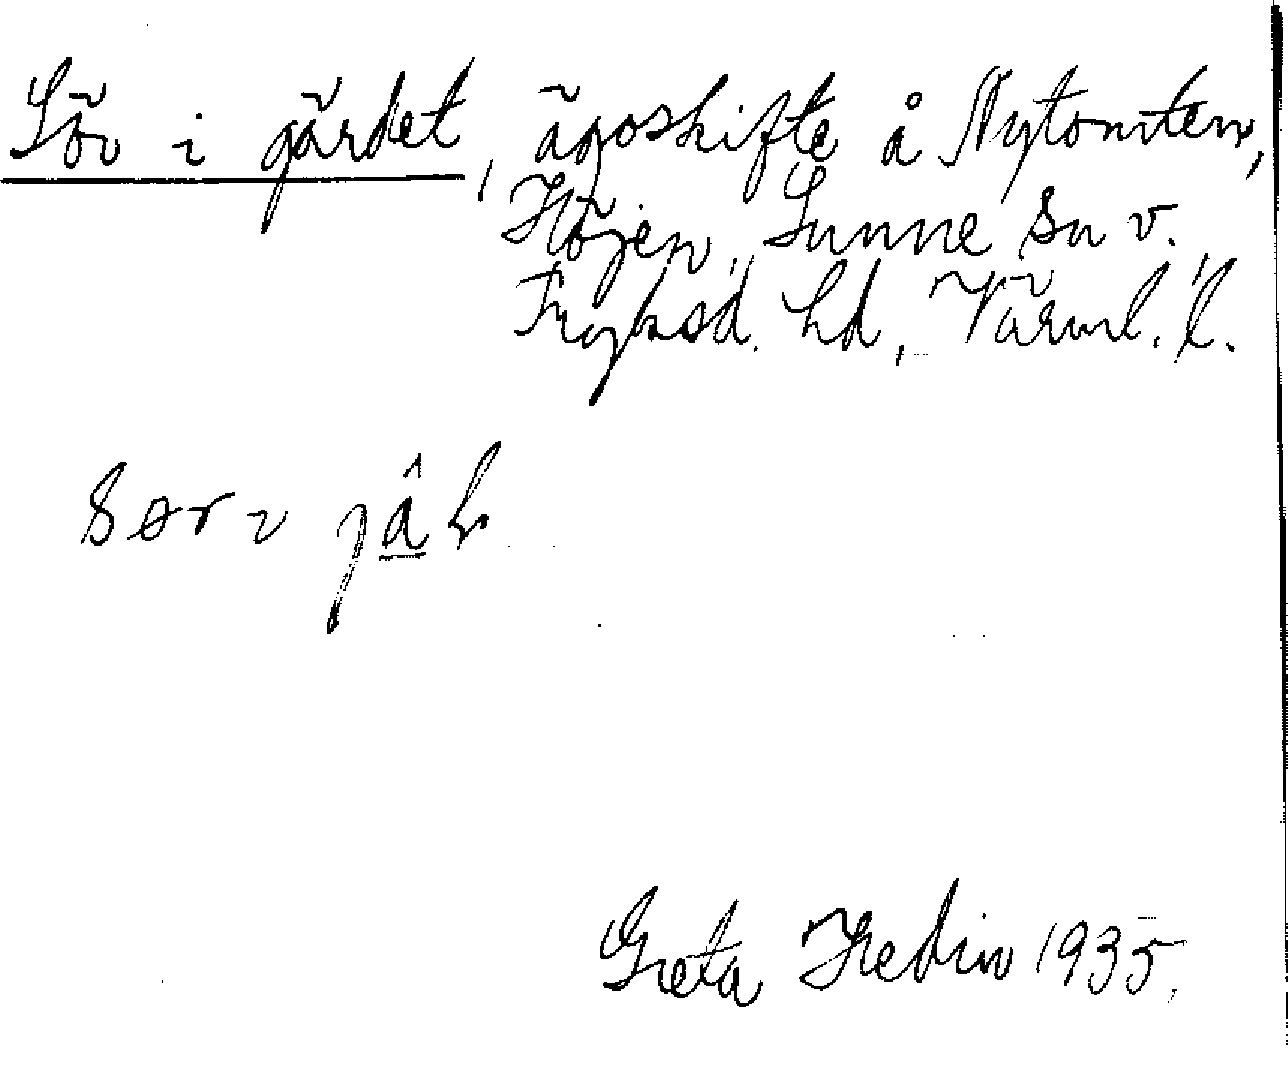 Sör i gärdet, ägoskifte å Nytomten,
Höjen, Sunne sn v.
Fryksd. hd, Värml. l.
Greta Hedin 1935.